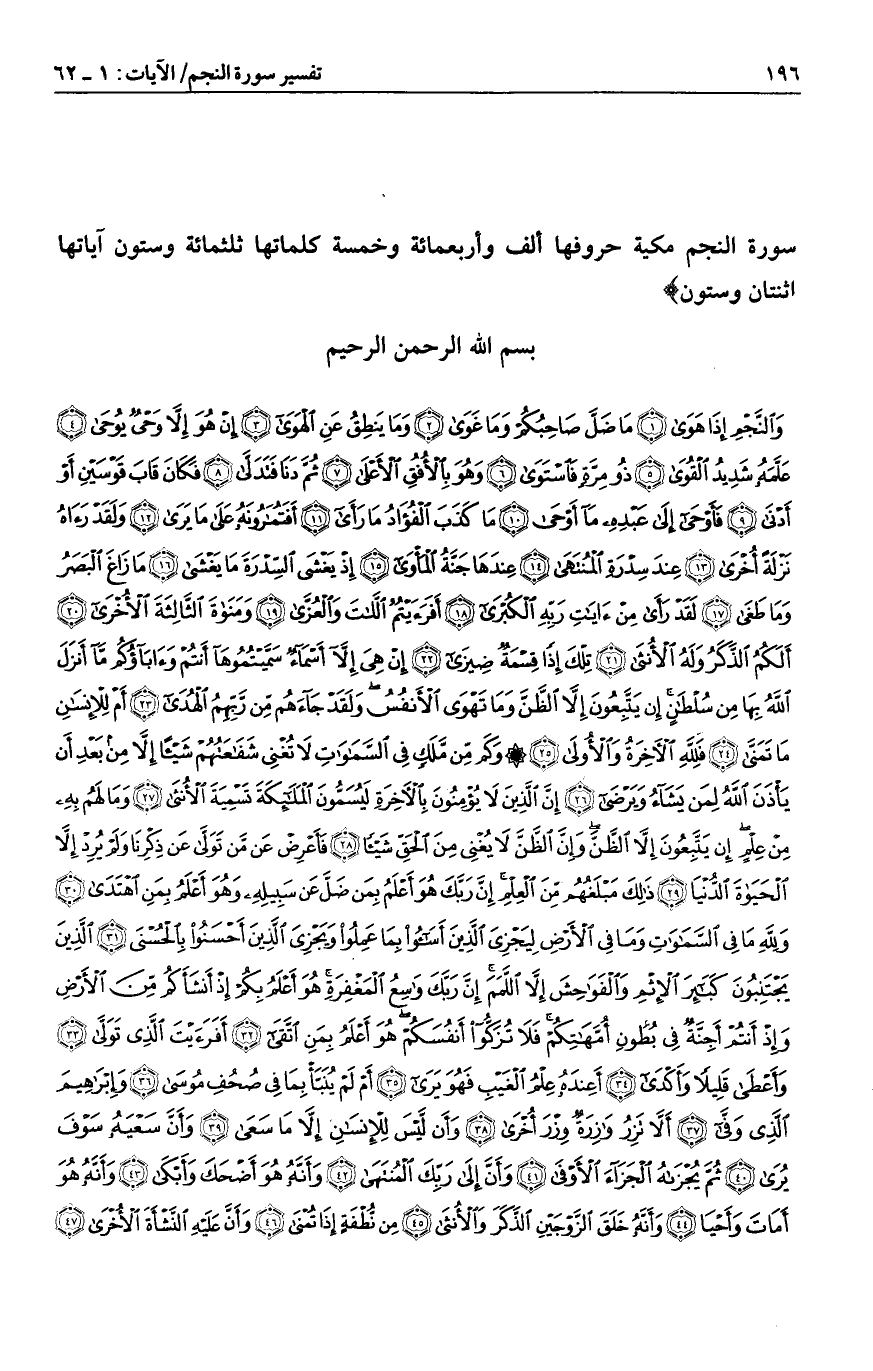 ١٩٦ تفسير سورة النجم/ الآيات: ١ ـ ٦٢
سورة النجم مكية حروفها ألف وأربعمائة وخمسة كلماتها ثلثمائة وستون آياتها
اثنتان وستون﴾
بسم الله الرحمن الرحيم
وَٱلنَّجْمِ إِذَا هَوَىٰ ﴿١﴾ مَا ضَلَّ صَاحِبُكُمْ وَمَا غَوَىٰ ﴿٢﴾ وَمَا يَنطِقُ عَنِ ٱلْهَوَىٰٓ ﴿٣﴾ إِنْ هُوَ إِلَّا وَحْىٌ يُوحَىٰ ﴿٤﴾
عَلَّمَهُۥ شَدِيدُ ٱلْقُوَىٰ ﴿٥﴾ ذُو مِرَّةٍ فَٱسْتَوَىٰ ﴿٦﴾ وَهُوَ بِٱلْأُفُقِ ٱلْأَعْلَىٰ ﴿٧﴾ ثُمَّ دَنَا فَتَدَلَّىٰ ﴿٨﴾ فَكَانَ قَابَ قَوْسَيْنِ أَوْ
أَدْنَىٰ ﴿٩﴾ فَأَوْحَىٰٓ إِلَىٰ عَبْدِهِۦ مَآ أَوْحَىٰ ﴿١٠﴾ مَا كَذَبَ ٱلْفُؤَادُ مَا رَأَىٰٓ ﴿١١﴾ أَفَتُمَٰرُونَهُۥ عَلَىٰ مَا يَرَىٰ ﴿١٢﴾ وَلَقَدْ رَءَاهُ
نَزْلَةً أُخْرَىٰ ﴿١٣﴾ عِندَ سِدْرَةِ ٱلْمُنتَهَىٰ ﴿١٤﴾ عِندَهَا جَنَّةُ ٱلْمَأْوَىٰٓ ﴿١٥﴾ إِذْ يَغْشَى ٱلسِّدْرَةَ مَا يَغْشَىٰ ﴿١٦﴾ مَا زَاغَ ٱلْبَصَرُ
وَمَا طَغَىٰ ﴿١٧﴾ لَقَدْ رَأَىٰ مِنْ ءَايَٰتِ رَبِّهِ ٱلْكُبْرَىٰٓ ﴿١٨﴾ أَفَرَءَيْتُمُ ٱللَّٰتَ وَٱلْعُزَّىٰ ﴿١٩﴾ وَمَنَوٰةَ ٱلثَّالِثَةَ ٱلْأُخْرَىٰٓ ﴿٢٠﴾
أَلَكُمُ ٱلذَّكَرُ وَلَهُ ٱلْأُنثَىٰ ﴿٢١﴾ تِلْكَ إِذًا قِسْمَةٌ ضِيزَىٰٓ ﴿٢٢﴾ إِنْ هِىَ إِلَّآ أَسْمَآءٌ سَمَّيْتُمُوهَآ أَنتُمْ وَءَابَآؤُكُم مَّآ أَنزَلَ
ٱللَّهُ بِهَا مِن سُلْطَٰنٍ ۚ إِن يَتَّبِعُونَ إِلَّا ٱلظَّنَّ وَمَا تَهْوَى ٱلْأَنفُسُ ۖ وَلَقَدْ جَآءَهُم مِّن رَّبِّهِمُ ٱلْهُدَىٰٓ ﴿٢٣﴾ أَمْ لِلْإِنسَٰنِ
مَا تَمَنَّىٰ ﴿٢٤﴾ فَلِلَّهِ ٱلْءَاخِرَةُ وَٱلْأُولَىٰ ﴿٢٥﴾ ۞ وَكَم مِّن مَّلَكٍ فِى ٱلسَّمَٰوَٰتِ لَا تُغْنِى شَفَٰعَتُهُمْ شَيْـًٔا إِلَّا مِنۢ بَعْدِ أَن
يَأْذَنَ ٱللَّهُ لِمَن يَشَآءُ وَيَرْضَىٰٓ ﴿٢٦﴾ إِنَّ ٱلَّذِينَ لَا يُؤْمِنُونَ بِٱلْءَاخِرَةِ لَيُسَمُّونَ ٱلْمَلَٰٓئِكَةَ تَسْمِيَةَ ٱلْأُنثَىٰ ﴿٢٧﴾ وَمَا لَهُم بِهِۦ
مِنْ عِلْمٍ ۖ إِن يَتَّبِعُونَ إِلَّا ٱلظَّنَّ ۖ وَإِنَّ ٱلظَّنَّ لَا يُغْنِى مِنَ ٱلْحَقِّ شَيْـًٔا ﴿٢٨﴾ فَأَعْرِضْ عَن مَّن تَوَلَّىٰ عَن ذِكْرِنَا وَلَمْ يُرِدْ إِلَّا
ٱلْحَيَوٰةَ ٱلدُّنْيَا ﴿٢٩﴾ ذَٰلِكَ مَبْلَغُهُم مِّنَ ٱلْعِلْمِ ۚ إِنَّ رَبَّكَ هُوَ أَعْلَمُ بِمَن ضَلَّ عَن سَبِيلِهِۦ وَهُوَ أَعْلَمُ بِمَنِ ٱهْتَدَىٰ ﴿٣٠﴾
وَلِلَّهِ مَا فِى ٱلسَّمَٰوَٰتِ وَمَا فِى ٱلْأَرْضِ لِيَجْزِىَ ٱلَّذِينَ أَسَٰٓـُٔوا۟ بِمَا عَمِلُوا۟ وَيَجْزِىَ ٱلَّذِينَ أَحْسَنُوا۟ بِٱلْحُسْنَى ﴿٣١﴾ ٱلَّذِينَ
يَجْتَنِبُونَ كَبَٰٓئِرَ ٱلْإِثْمِ وَٱلْفَوَٰحِشَ إِلَّا ٱللَّمَمَ ۚ إِنَّ رَبَّكَ وَٰسِعُ ٱلْمَغْفِرَةِ ۚ هُوَ أَعْلَمُ بِكُمْ إِذْ أَنشَأَكُم مِّنَ ٱلْأَرْضِ
وَإِذْ أَنتُمْ أَجِنَّةٌ فِى بُطُونِ أُمَّهَٰتِكُمْ ۖ فَلَا تُزَكُّوٓا۟ أَنفُسَكُمْ ۖ هُوَ أَعْلَمُ بِمَنِ ٱتَّقَىٰٓ ﴿٣٢﴾ أَفَرَءَيْتَ ٱلَّذِى تَوَلَّىٰ ﴿٣٣﴾
وَأَعْطَىٰ قَلِيلًا وَأَكْدَىٰٓ ﴿٣٤﴾ أَعِندَهُۥ عِلْمُ ٱلْغَيْبِ فَهُوَ يَرَىٰٓ ﴿٣٥﴾ أَمْ لَمْ يُنَبَّأْ بِمَا فِى صُحُفِ مُوسَىٰ ﴿٣٦﴾ وَإِبْرَٰهِيمَ
ٱلَّذِى وَفَّىٰٓ ﴿٣٧﴾ أَلَّا تَزِرُ وَازِرَةٌ وِزْرَ أُخْرَىٰ ﴿٣٨﴾ وَأَن لَّيْسَ لِلْإِنسَٰنِ إِلَّا مَا سَعَىٰ ﴿٣٩﴾ وَأَنَّ سَعْيَهُۥ سَوْفَ
يُرَىٰ ﴿٤٠﴾ ثُمَّ يُجْزَىٰهُ ٱلْجَزَآءَ ٱلْأَوْفَىٰ ﴿٤١﴾ وَأَنَّ إِلَىٰ رَبِّكَ ٱلْمُنتَهَىٰ ﴿٤٢﴾ وَأَنَّهُۥ هُوَ أَضْحَكَ وَأَبْكَىٰ ﴿٤٣﴾ وَأَنَّهُۥ هُوَ
أَمَاتَ وَأَحْيَا ﴿٤٤﴾ وَأَنَّهُۥ خَلَقَ ٱلزَّوْجَيْنِ ٱلذَّكَرَ وَٱلْأُنثَىٰ ﴿٤٥﴾ مِن نُّطْفَةٍ إِذَا تُمْنَىٰ ﴿٤٦﴾ وَأَنَّ عَلَيْهِ ٱلنَّشْأَةَ ٱلْأُخْرَىٰ ﴿٤٧﴾